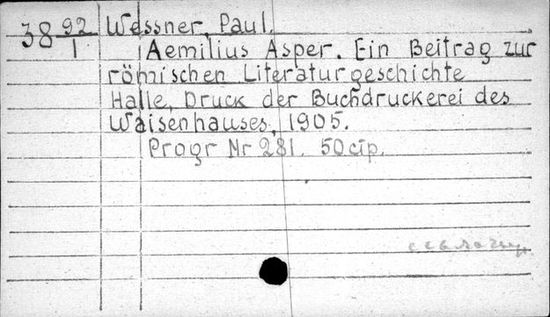 38 92/1 Wessner, Paul.
Aemilius Asper. Ein Beitrag zur
römischen Literaturgeschichte
Halle, Druck der Buchdruckerei des
Waisenhauses, 1905.
Progr Nr 281. 50 cтр.